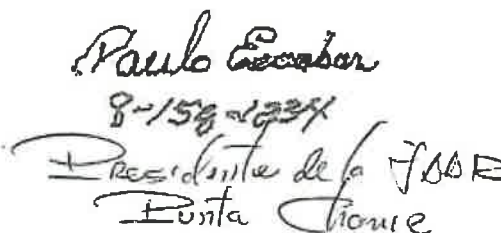 Paulo Escobar
8-158-1234
Presidente de la
Punta Chame